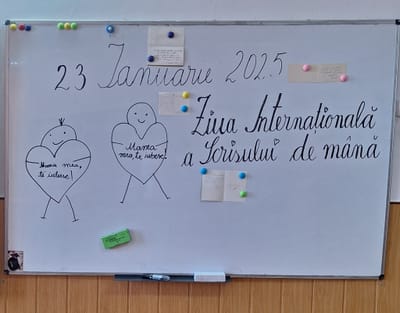 23 Ianuarie 2025
Ziua Internațională
a Scrisului de mână
Mama
mea, te iubesc!
Mama mea,
te iubesc!